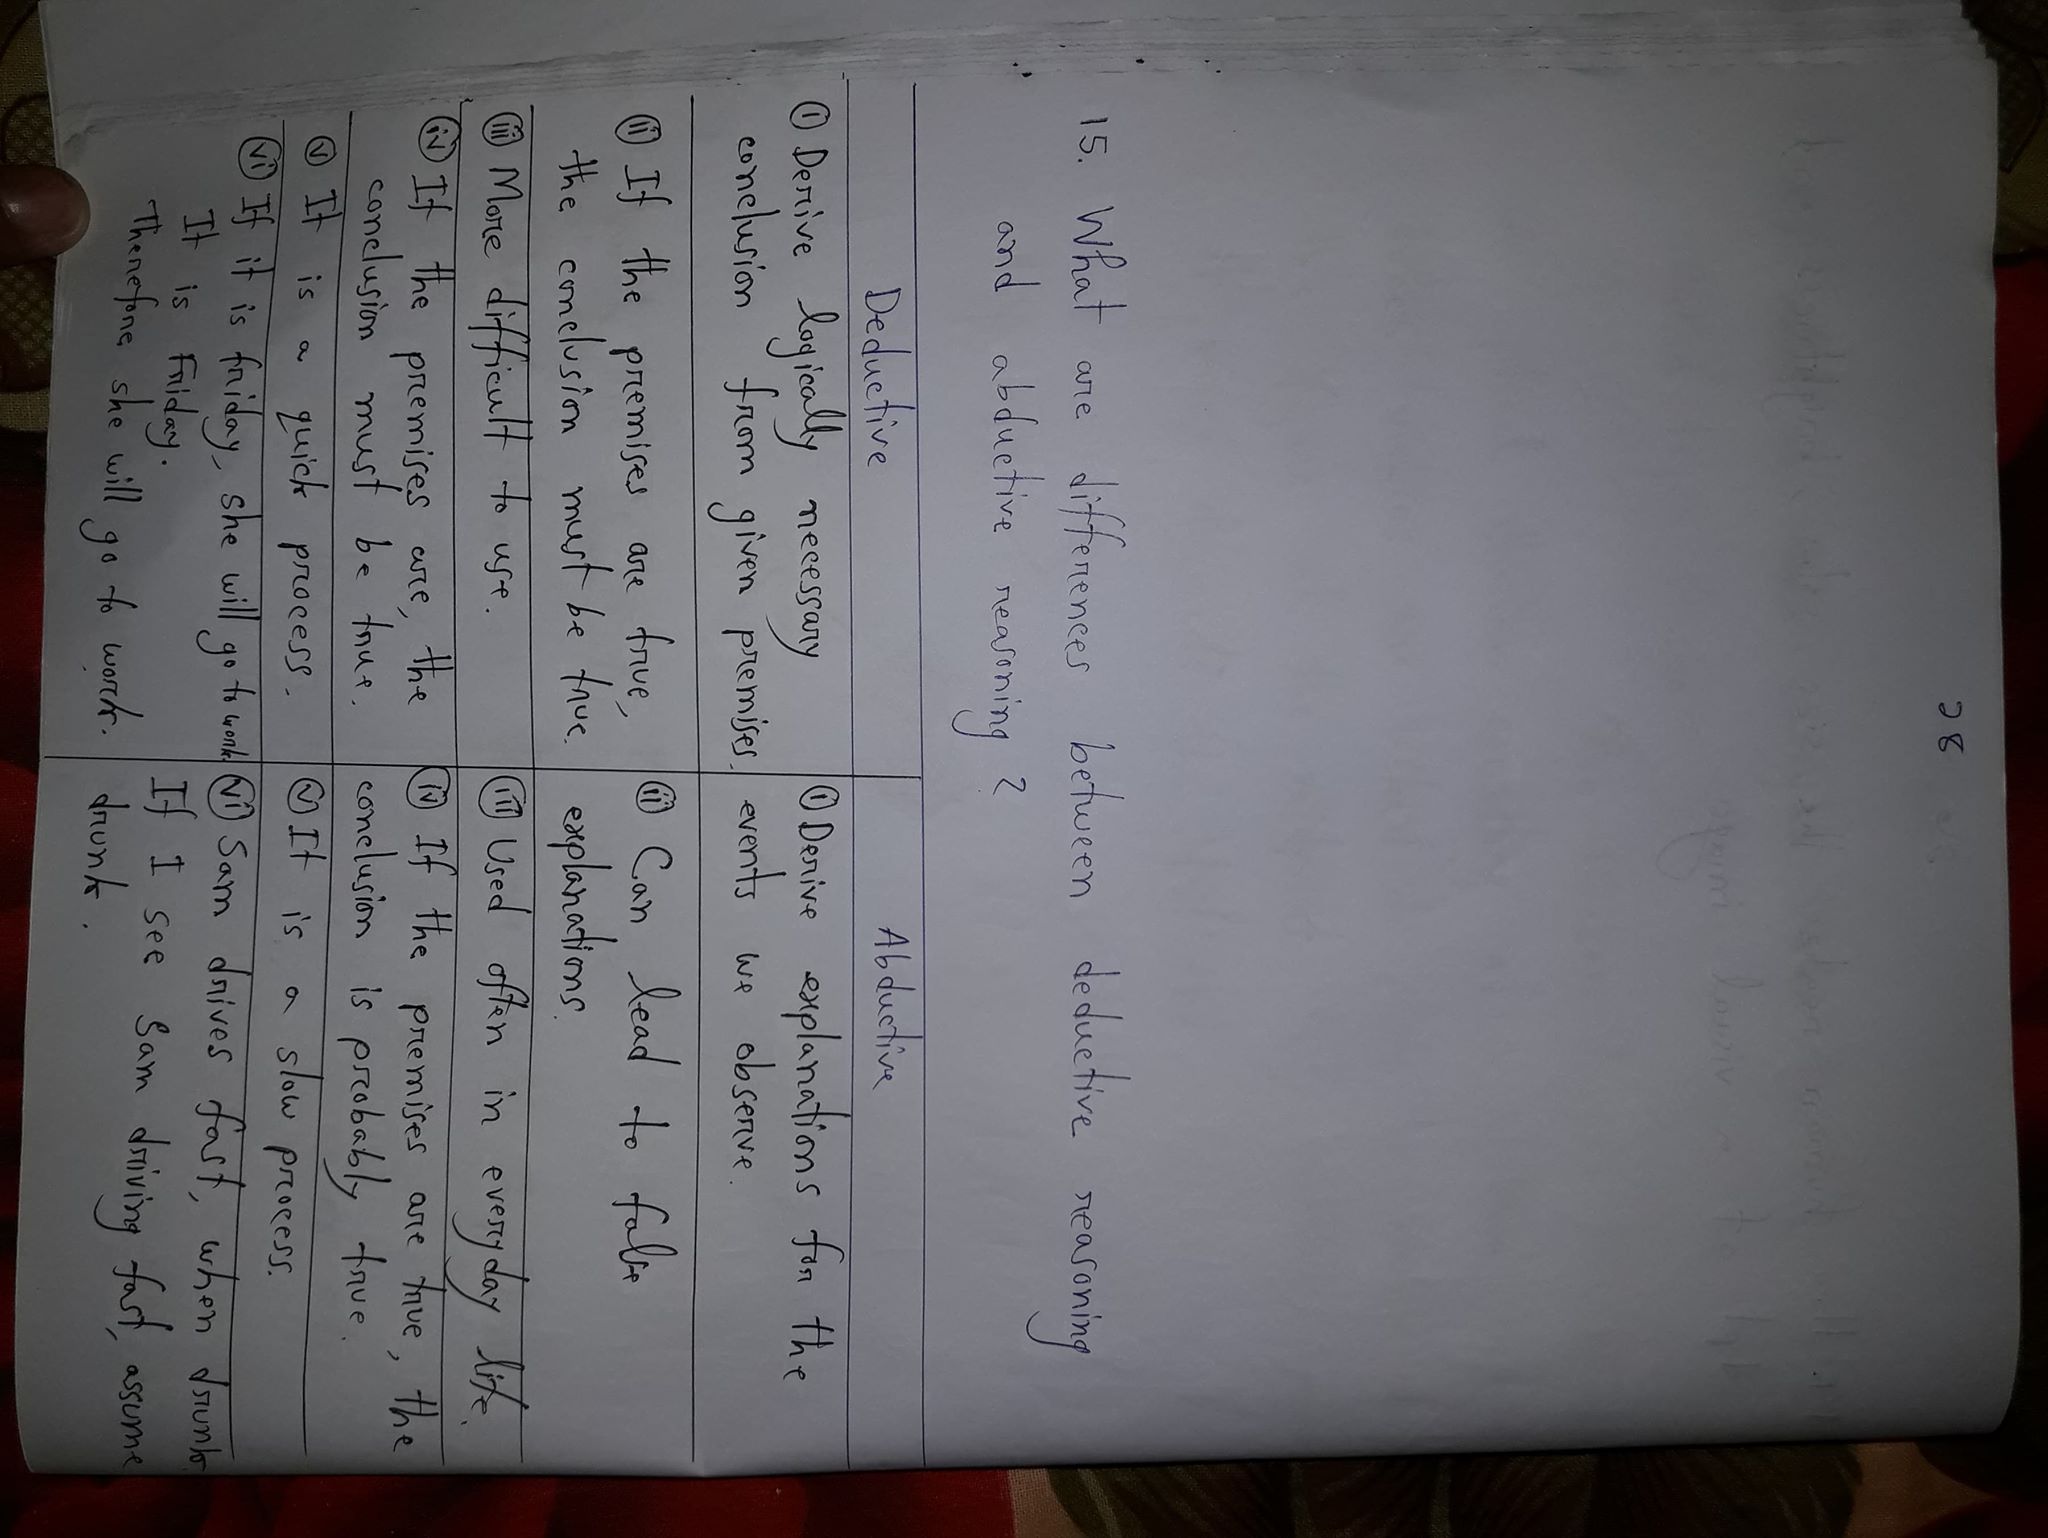 28
15. What are differences between deductive reasoning
and abductive reasoning?
Deductive
Abductive
(i) Derive logically necessary
conclusion from given premises.
(i) Derive explanations for the
events we observe.
(ii) If the premises are true,
the conclusion must be true.
(ii) Can lead to false
explanations.
(iii) More difficult to use.
(iii) Used often in everyday life.
(iv) If the premises are, the
conclusion must be true.
(iv) If the premises are true, the
conclusion is probably true.
(v) It is a quick process.
(v) It is a slow process.
(vi) If it is friday, she will go to work
It is Friday.
Therefore she will go to work.
(vi) Sam drives fast, when drunk
If I see Sam driving fast, assume
drunk.